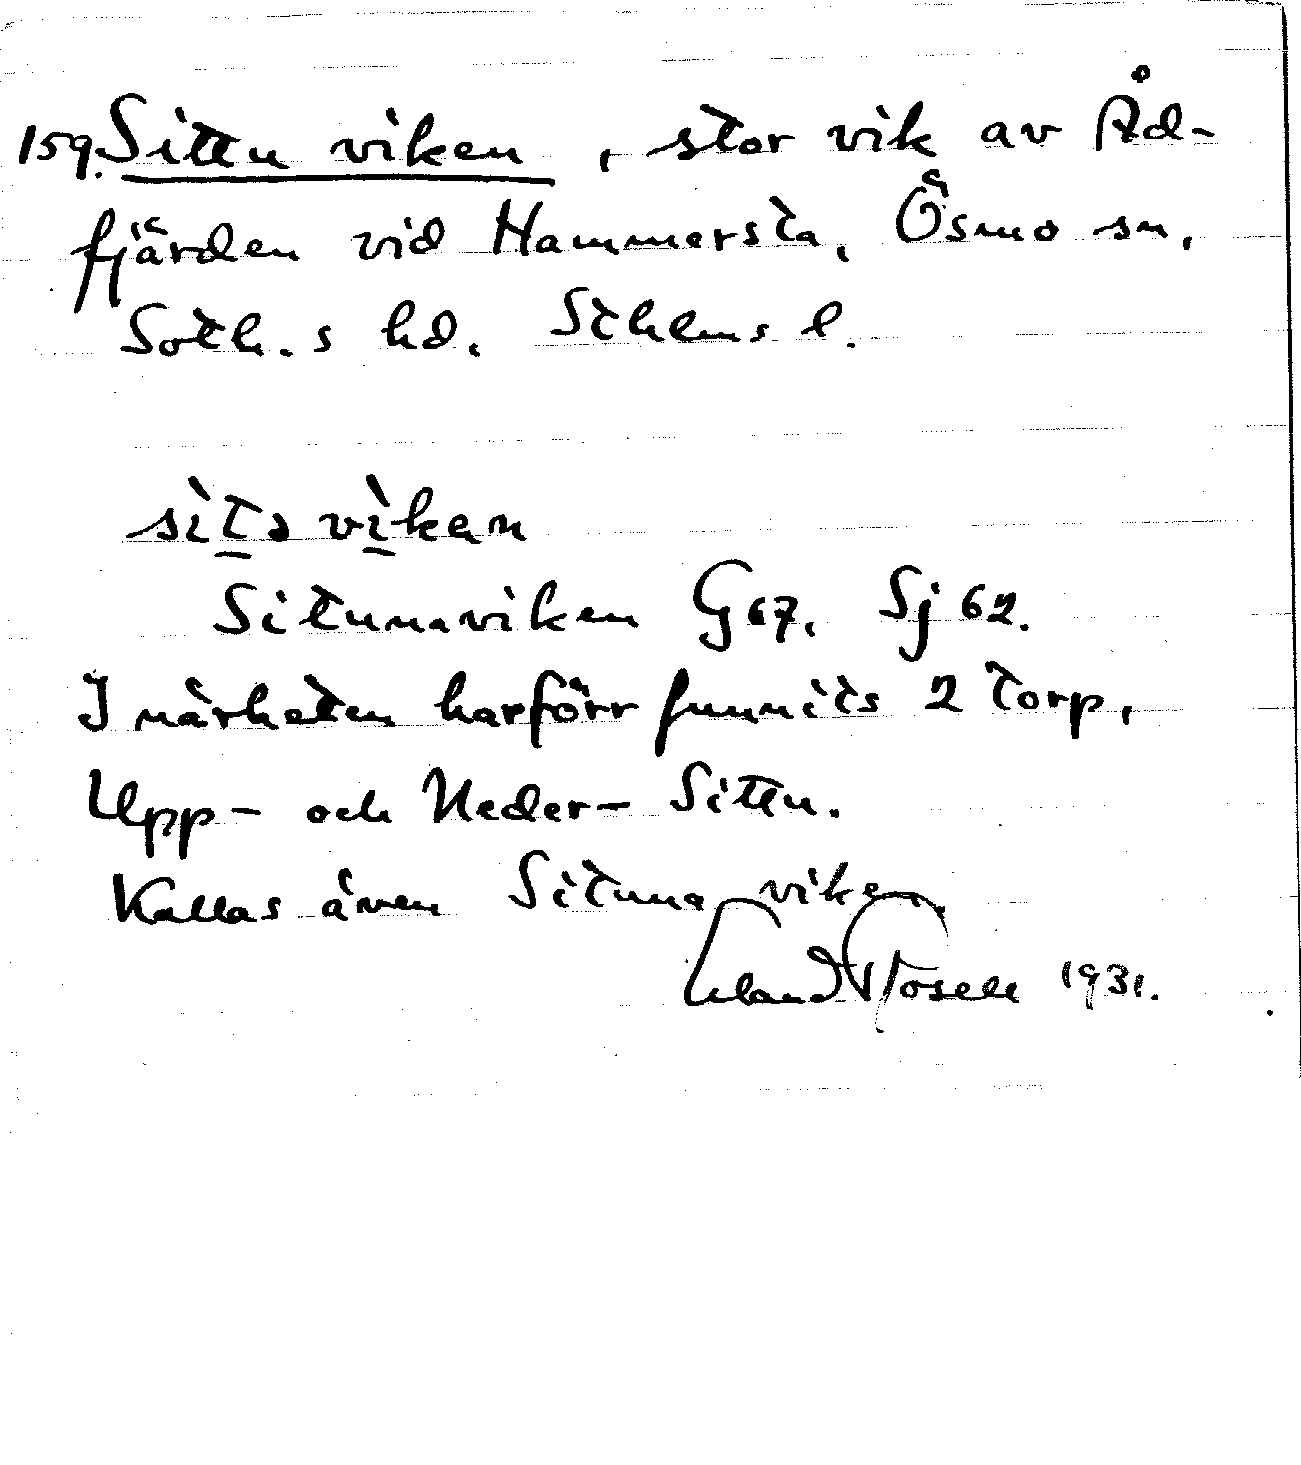 159. Sittuviken, stor vik av Åd-
fjärden vid Hammersta, Ösmo sn,
Soth.s hd. Sthlms l.
sìtəvìkan
Situnaviken G 67, Sj 62.
I närheten har förr funnits 2 torp,
Upp- och Neder- Sittu.
Kallas även Situna viken.
Erland Rosell 1931.